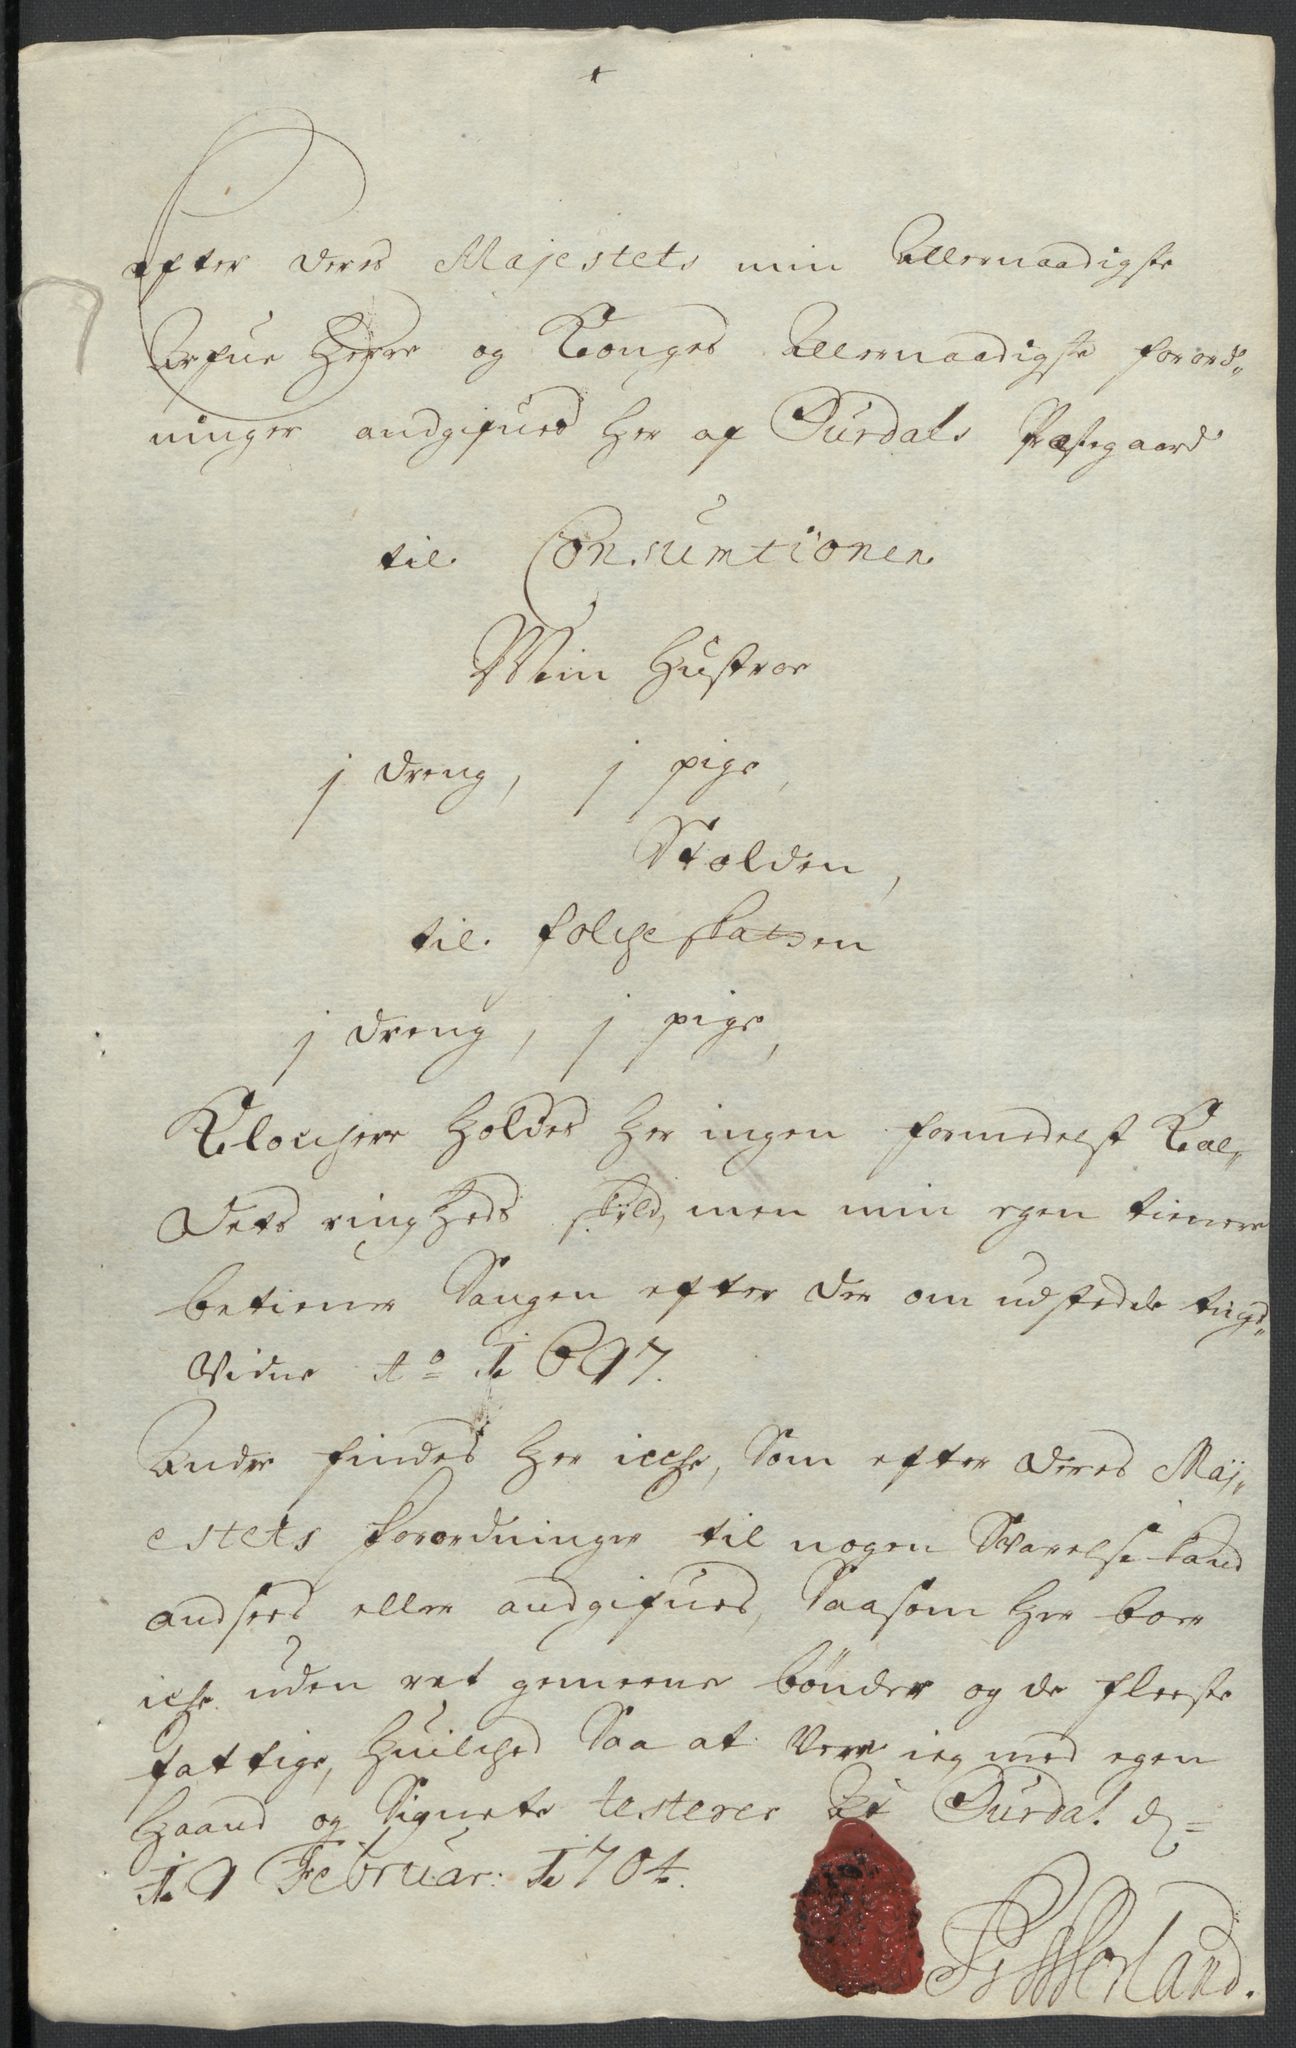 Efter Deres Majestets min Allernaadigste
Arfue Herre og Konges Allernaadigste forord„
ninger andgifues her af Ourdals Præstegaard
til Consumtionen
Min Hustroe
j dreng, j pige,
Stolden,
til folcheskatten
j dreng, j pige,
Klochere holdes her ingen formedelst Kal„
dets ringheds skyld, men min egen tienere
betiener Sangen efter der om udstedde tings„
Vidne Ao 1697.
Andre findes her icche, som efter Deres Maj„
estets forordninger til nogen Svarelse kand
andsees eller andgifues, Saasom her boer
iche uden ret gemeene bønder og de fleeste
fattige, Huilched Saa at Vere ieg med egen
Haand og Signete testerer At Ourdal d=
19 Februar: 1704.